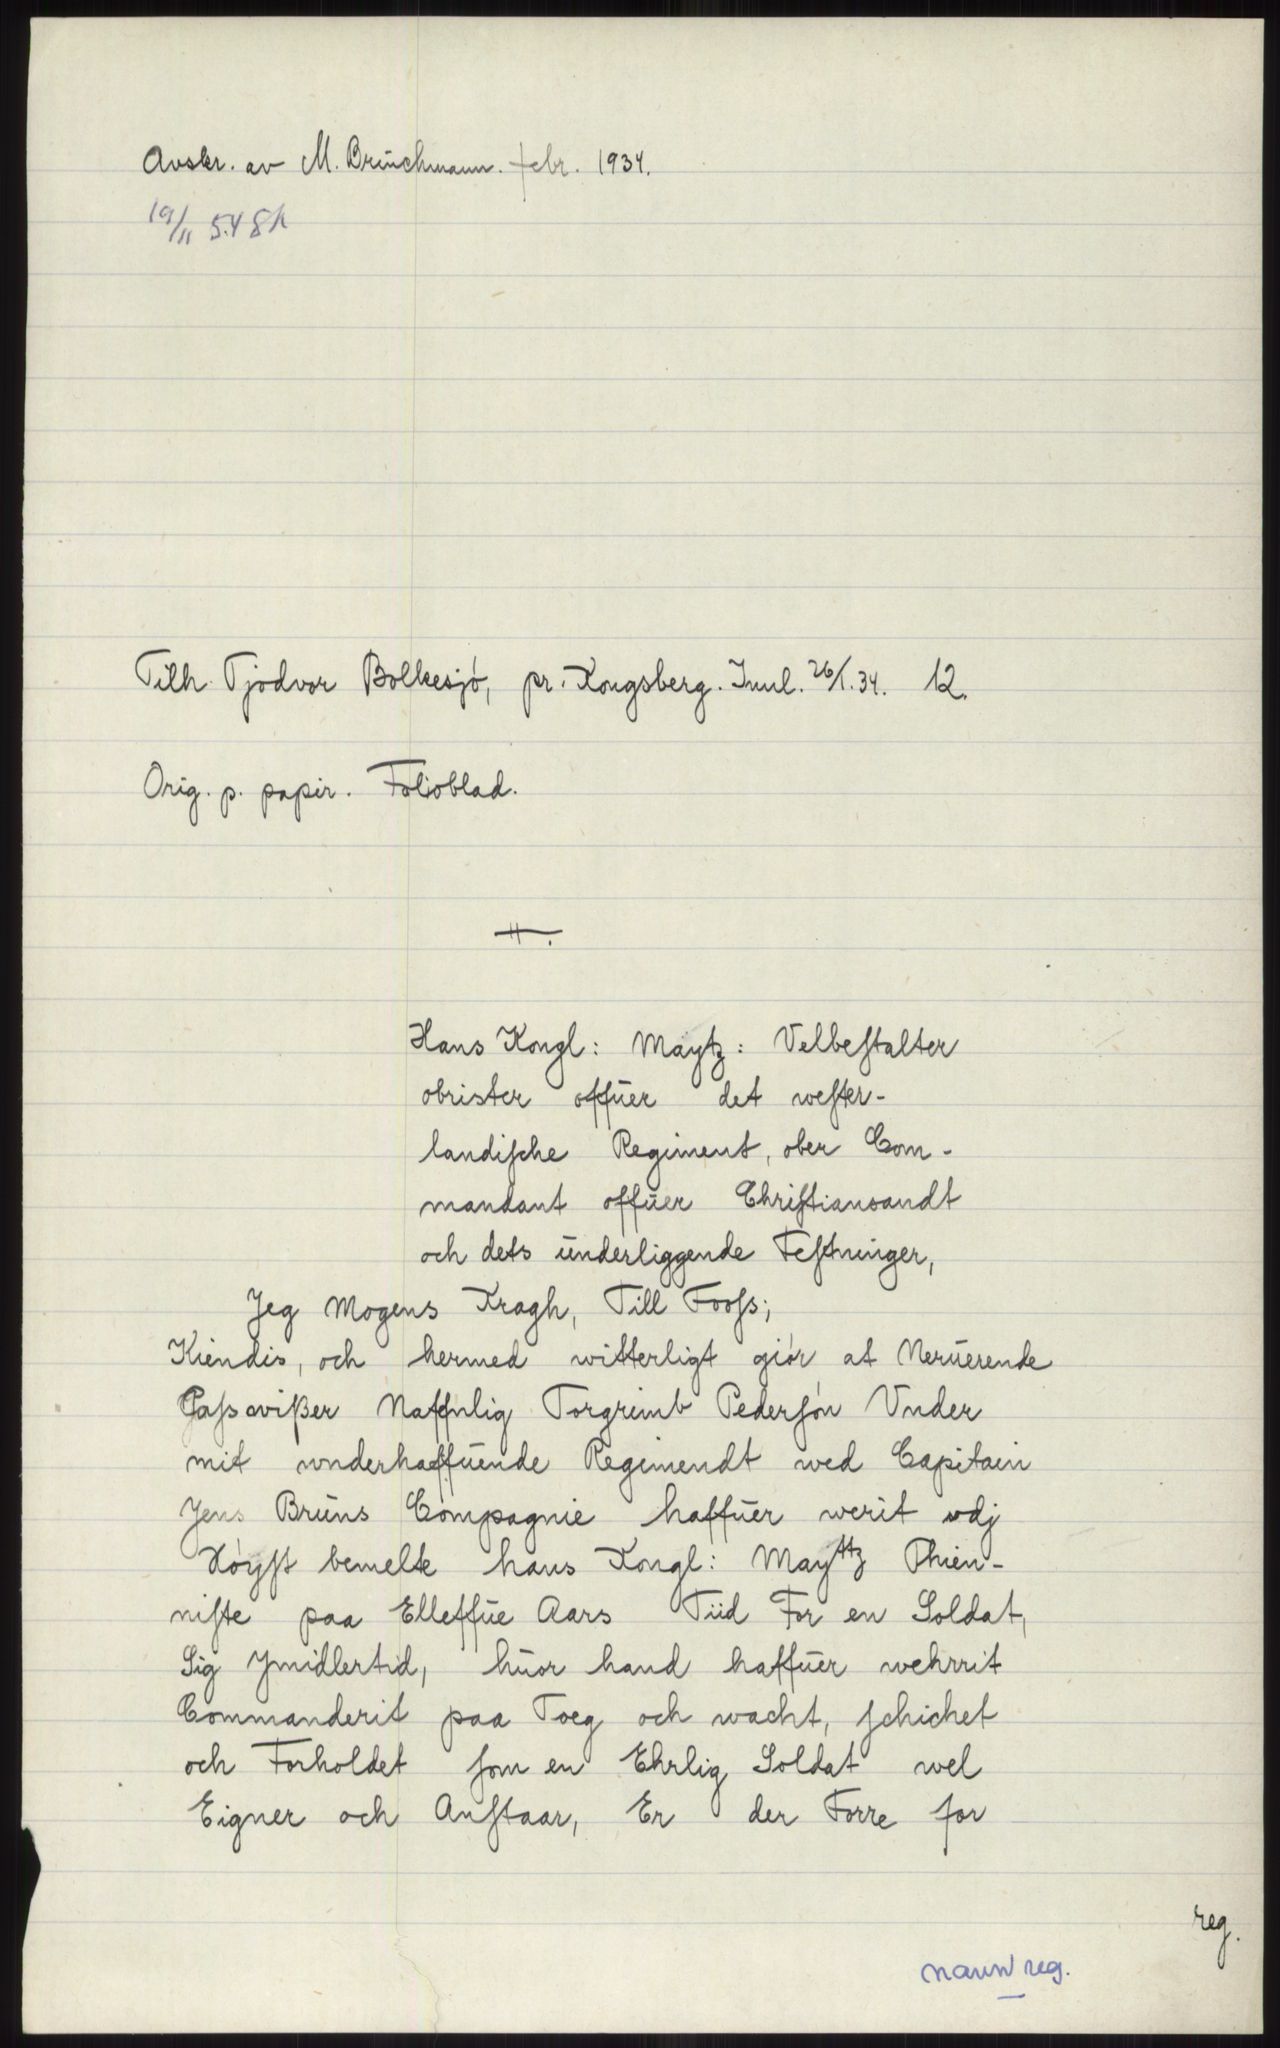 Avskr. av M. Brüchmann. febr. 1934.
19/11 54 8h
Tilh. Tjodvor Bolkesjö, pr. Kongsberg. Innl. 26/1.34. 12.
Orig. p. papir. Folioblad.
Hans Kongl: Maytz: Velbestalter
obrister offuer det wester-
landische Regiment, ober Com-
mandant offuer Christiansandt
och dets underliggende Festninger,
Jeg Mogens Kragh, Till Foess;
Kiendis, och hermed witterligt giör, at Neruerende
Passvißer Naffnlig Torgrimb Pedersön Vnder
mit wnderhaffuende Regimendt wed Capitain
Jens Bruns Compagnie haffuer werit vdj
Höyst bemelte hans Kongl: Mayttz Thien-
niste paa Elleffue Aars Tiid For en Soldat,
Sig ymidlertid, huor hand haffuer wehrrit
Commanderit paa Toeg och wacht, schichet
och Forholdet som en Ehrlig Soldat wel
Eigner och Anstaar, Er der Forre for
reg.
navn reg.